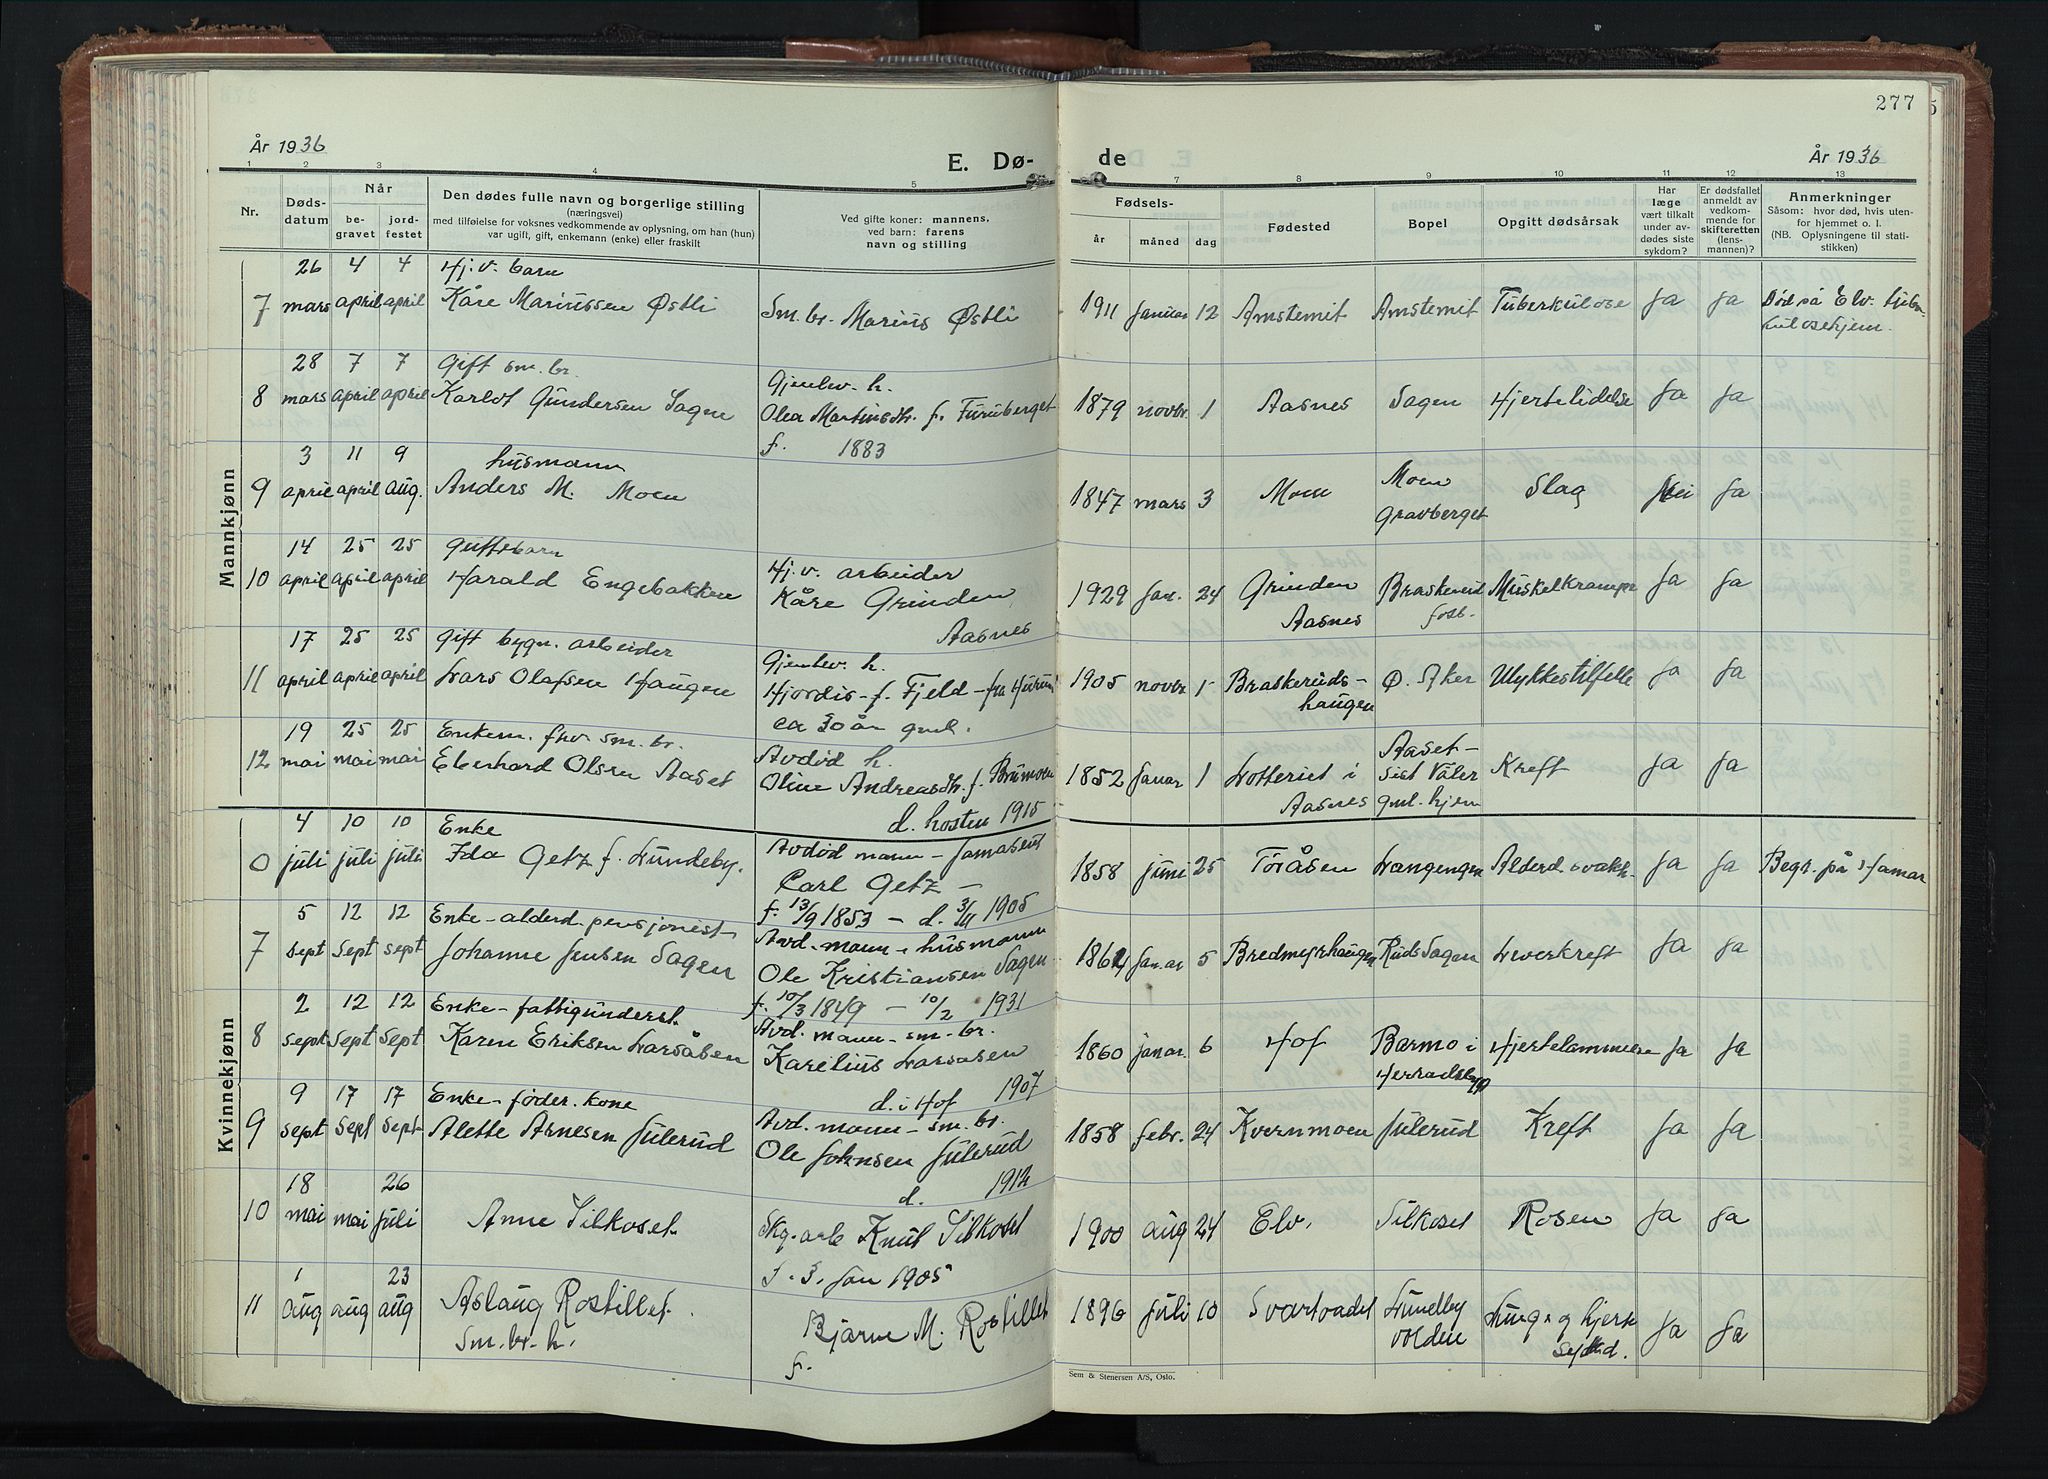 277
År 1936
E. Dø-
de
År 1936
1 2 3 4 5 7 8 9 10 11 12 13
Nr.
Døds-
datum
Når
be-
gravet
jord-
festet
Den dødes fulle navn og borgerlige stilling
(næringsvei)
med tilføielse for voksnes vedkommende av oplysning, om han (hun)
var ugift, gift, enkemann (enke) eller fraskilt
Ved gifte koner: mannens,
ved barn: farens
navn og stilling
Fødsels-
år måned dag
Fødested
Bopel
Opgitt dødsårsak
Har
læge
vært tilkalt
under av-
dødes siste
sykdom?
Er dødsfallet
anmeldt av
vedkom-
mende for
skifteretten
(lens-
mannen)?
Anmerkninger
Såsom: hvor død, hvis uten-
for hjemmet o. l.
(NB. Oplysningene til stati-
stikken)
Mannkjønn
26 4 4 Hj.v. barn
7 mars april april Kåre Mariussen Østli Sm.br. Marius Østli 1911 Januar 12 Amstemit Amstemit Tuberkulose Ja Ja Død på Elv. tuber-
kulosehjem.
28 7 7 Gift sm. br.
Gjenlev. h.
8 mars april april Karlot Gundersen Sagen Olea Martinsdtr. f. Furuberget 1879 novbr. 1 Aasnes Sagen Hjertelidelse Ja Ja
f. 1883
3 11 9 husmann
9 april april aug. Anders M. Moen 1847 mars 3 Moen Moen Slag Nei Ja
Gravberget
14 25 25 Guttebarn
Hj.v. arbeider
10 april april april Harald Engebakken Kåre Grinden 1929 Jan. 24 Grinden Braskereid Muskelkrampe Ja Ja
Aasnes Aasnes
17 25 25 Gift bygn. arbeider
Gjenlev. h.
11 april april april Lars Olafsen Haugen Hjordis f. Fjeld - fra Hurum 1905 novbr 1 Braskereids- Ø. Aker Ulykkestilfelle Ja Ja
haugen
ca 30 år gml.
19 25 25 Enkem. fhv. sm. br.
Avdød h.
12 mai mai mai Eberhard Olsen Aaset Oline Andreasdtr. f. Brumoen 1852 Januar 1 Lotteriet i Aaset- Kreft Ja Ja
Aasnes Sist Våler
gml. hjem
d. høsten 1915
Kvinnekjønn
4 10 10 Enke
Avdød mann -
0 juli juli juli Ida Getz f. Lundeby. Carl Getz - 1858 juni 25 Toråsen Alderd. svakh. Ja Ja Begr. på Hamar
f. 13/9 1853 - d. 1905
5 12 12 Enke - alderd. pensjonist
Avd. mann - husmann
7 sept sept sept Johanne Jensen Sagen Ole Kristiansen Sagen 1864 Januar 5 Rud Sagen Leverkreft Ja Ja
f. 10/3 1849 - 10/2 1931
2 12 12 Enke - fattigunderst.
Avd. mann - sm. br.
8 sept sept sept Karen Eriksen Larsåsen Karelius Larsåsen 1860 januar. 6 Hof Barmo i Hjertelammelse Ja Ja
Herradsbygd
d. i Hof 1907
9 17 17 Enke - føder. kone
Avd. mann - sm. br.
9 sept sept sept Alette Arnesen Julerud Ole Johnsen Julerud 1858 febr. 24 Kvernmoen Julerud Kreft Ja Ja
d. 1912
18 26
10 mai mai juli Anne Silkoset. Skg. arb Knut Silkoset 1900 aug 24 Elv. Silkoset Rosen Ja Ja
f. 3. Jan 1905
1 23
11 aug aug aug Aslaug Rostillet. Bjarne M. Rostillet 1896 Juli 10 Svartvadet Lundby Lunge og hjerte Ja Ja
volden
Sm. br. h. f.
Sem & Stenersen A/S, Oslo.